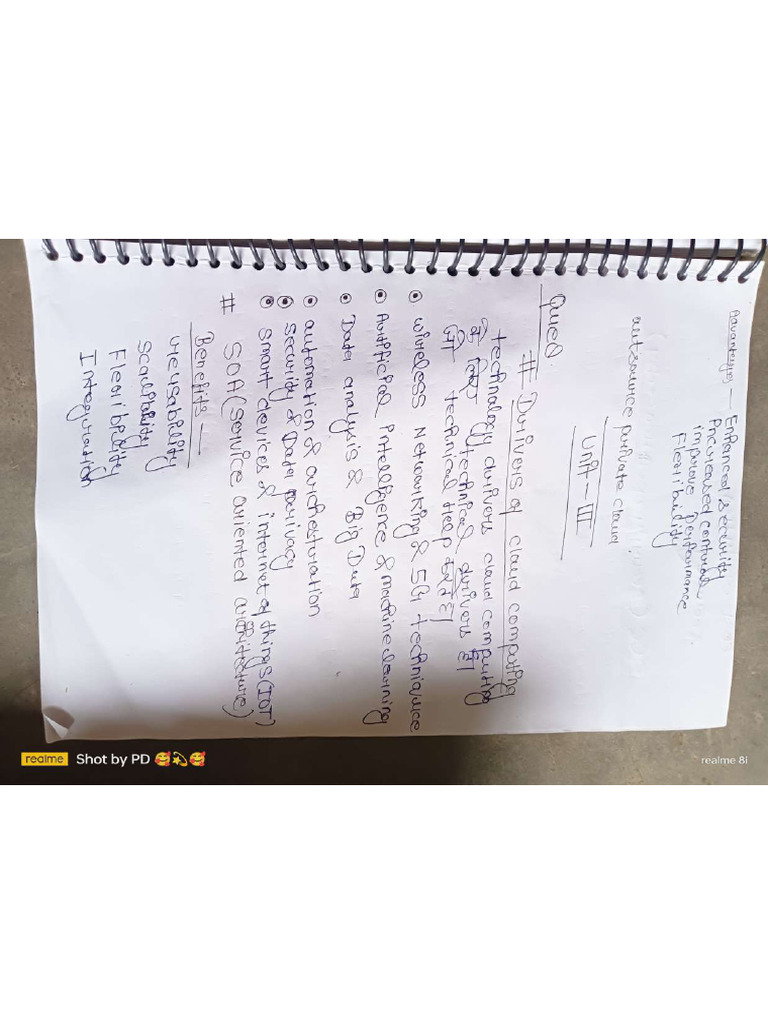 Advantages — Enhanced security
Increased control
improve performance
Flexibility
outsource private cloud
Unit - III
Ques.
# Drivers of cloud computing
technology drivers cloud computing
के लिए technical drivers हैं।
जो technical help करते हैं।
⊙ wireless Networking & 5G technique
⊙ Artificial Intelligence & machine learning
⊙ Data analysis & Big Data
⊙ automation & archesturation
⊙ Security & Data privacy
⊙ smart devices & internet of things (IOT)
# SOA (Service oriented architecture)
Benefits —
reusability
scalibility
Flexibility
Integration
realme Shot by PD 🥰💫🥰
realme 8i